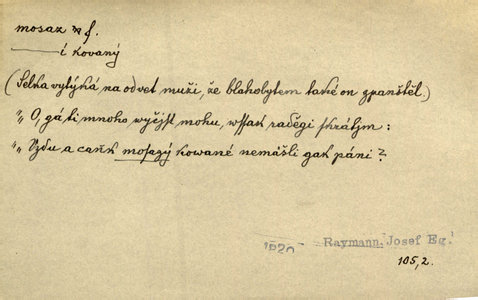 mosaz f.
— í kovaný
(Selka vytýká na odvet muži, že blahobytem také on zpanštěl.)
„ O, gá ti mnoho wyčjst mohu, wssak raděgi skrátjm:
„ a mosazý kowané nemášli gak páni?
1820 Raymann, Josef Eg.
105,2.